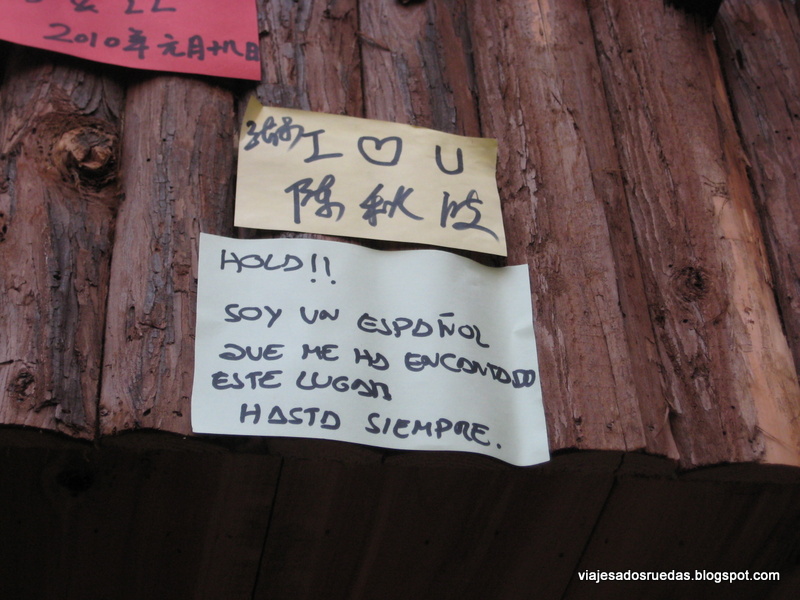 2010年元月十八日
I ♡ U
陈秋波
HOLA!!
SOY UN ESPAÑOL
QUE ME HA ENCANTADO
ESTE LUGAR
HASTA SIEMPRE.
viajesadosruedas.blogspot.com